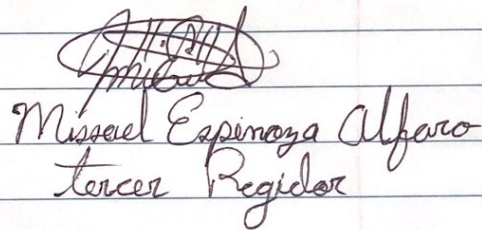 Missael Espinoza Alfaro
tercer Regidor